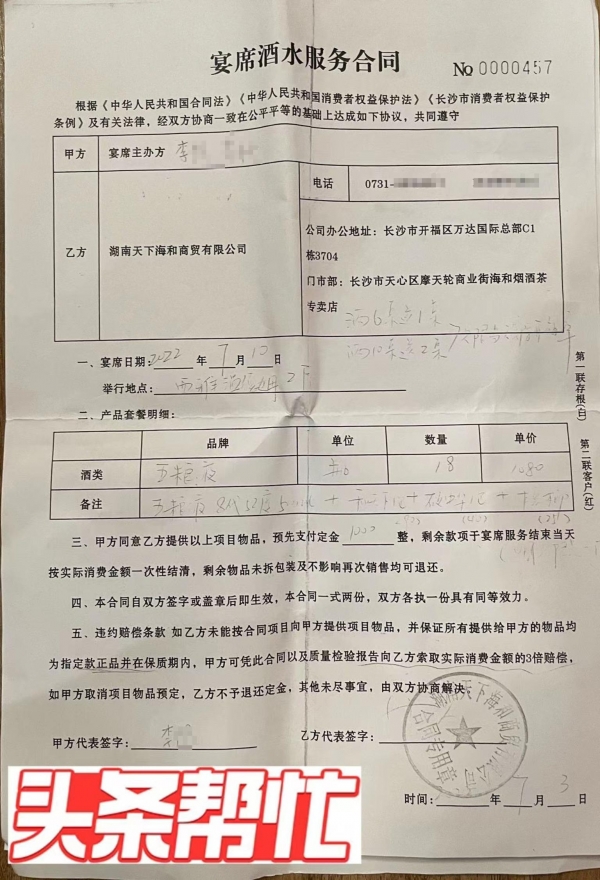 宴席酒水服务合同
No 0000457
根据《中华人民共和国合同法》《中华人民共和国消费者权益保护法》《长沙市消费者权益保护
条例》及有关法律，经双方协商一致在公平平等的基础上达成如下协议，共同遵守
甲方 宴席主办方 李
乙方 湖南天下海和商贸有限公司
电话 0731-
公司办公地址：长沙市开福区万达国际总部C1
栋3704
门市部：长沙市天心区摩天轮商业街海和烟酒茶
专卖店
满6桌送1桌
满10桌送2桌
一、宴席日期：2022年7月10日
举行地点：
二、产品套餐明细：
品牌 单位 数量 单价
酒类 五粮液 18 1080
备注 五粮液
三、甲方同意乙方提供以上项目物品，预先支付定金 1000 整，剩余款项于宴席服务结束当天
按实际消费金额一次性结清，剩余物品未拆包装及不影响再次销售均可退还。
四、本合同自双方签字或盖章后即生效，本合同一式两份，双方各执一份具有同等效力。
五、违约赔偿条款 如乙方未能按合同项目向甲方提供项目物品，并保证所有提供给甲方的物品均
为指定款正品并在保质期内，甲方可凭此合同以及质量检验报告向乙方索取实际消费金额的3倍赔偿，
如甲方取消项目物品预定，乙方不予退还定金，其他未尽事宜，由双方协商解决。
甲方代表签字：李
乙方代表签字：
湖南天下海和商贸有限公司
合同专用章
时间： 年7月3日
第一联存根(白) 第二联客户(红)
头条帮忙